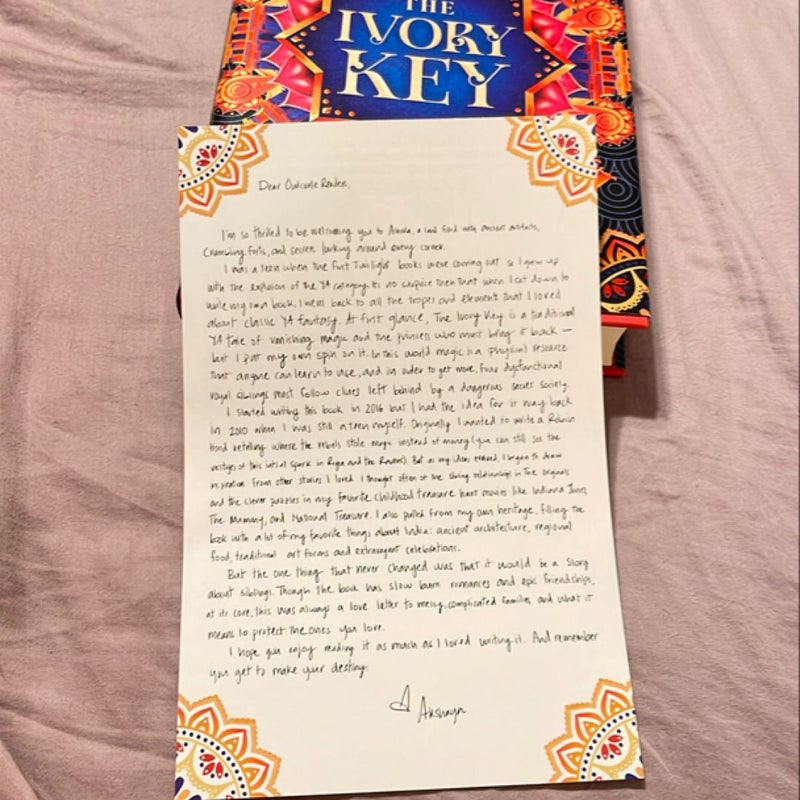 THE
IVORY
KEY
Dear Owlcrate Reader,
I'm so thrilled to be welcoming you to Ashoka, a land filled with ancient artifacts,
crumbling forts, and secrets lurking around every corner.
I was a teen when the first Twilight books were coming out so I grew up
with the explosion of the YA category. It's no surprise then that when I sat down to
write my own book, I went back to all the tropes and elements that I loved
about classic YA fantasy. At first glance, The Ivory Key is a traditional
YA tale of vanishing magic and the princess who must bring it back —
but I put my own spin on it. In this world magic is a physical resource
that anyone can learn to use, and in order to get more, four dysfunctional
royal siblings must follow clues left behind by a dangerous secret society.
I started writing this book in 2016 but I had the idea for it way back
in 2010 when I was still a teen myself. Originally I wanted to write a Robin
Hood retelling where the rebels stole magic instead of money (you can still see the
vestiges of this initial spark in Riya and the Ravens). But as my ideas evolved, I began to draw
inspiration from other stories I loved. I thought often of the sibling relationships in The Originals
and the clever puzzles in my favorite childhood treasure hunt movies like Indiana Jones,
The Mummy, and National Treasure. I also pulled from my own heritage, filling the
book with a lot of my favorite things about India: ancient architecture, regional
food, traditional art forms and extravagant celebrations.
But the one thing that never changed was that it would be a story
about siblings. Though the book has slow burn romances and epic friendships,
at its core, this was always a love letter to messy, complicated families and what it
means to protect the ones you love.
I hope you enjoy reading it as much as I loved writing it. And remember
you get to make your destiny.
Akshaya